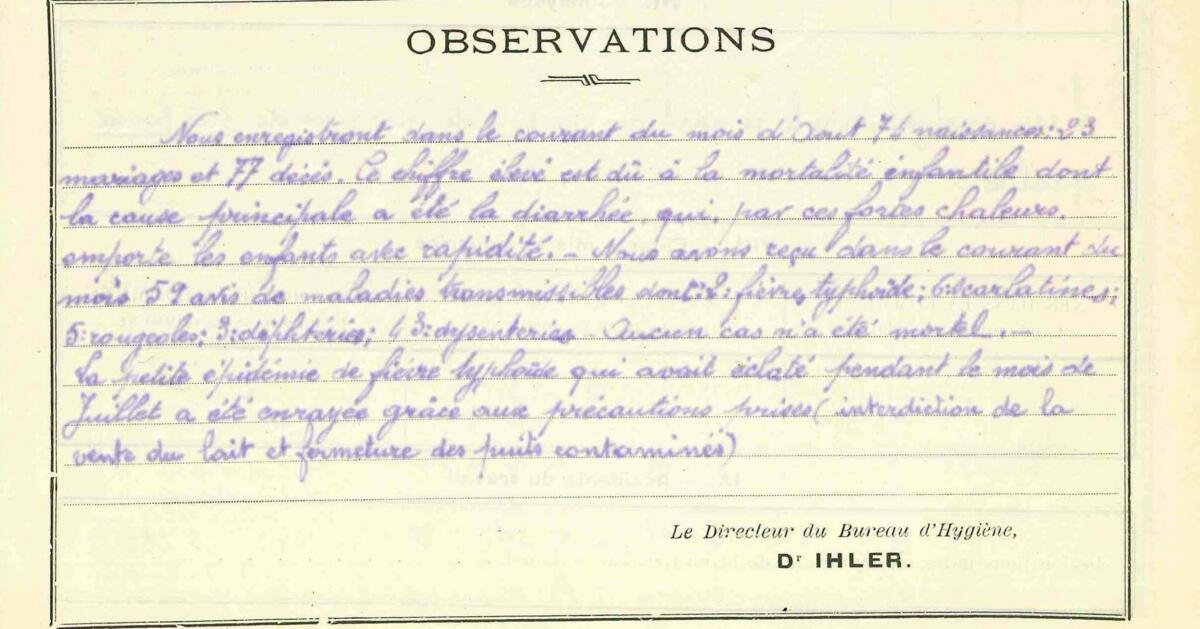 OBSERVATIONS
Nous enregistront dans le courant du mois d'Aout 74 naissances: 23
mariages et 77 décés. Ce chiffre élevé est dû à la mortalité enfantile dont
la cause principale a été la diarrhée, qui, par ces fortes chaleurs,
emporte les enfants avec rapidité. - Nous avons reçu dans le courant du
mois 59 avis de maladies transmissibles dont: 2: fiévre typhoïde; 6: scarlatines;
5: rougeoles; 3: déphtéries; 43: dysenteries - Aucun cas n'a été mortel. -
La petite épidémie de fiévre typhoïde qui avait éclaté pendant le mois de
Juillet a été enrayée grâce aux précautions prises ( interdiction de la
vente du lait et fermeture des puits contaminés)
Le Directeur du Bureau d'Hygiène,
Dr IHLER.